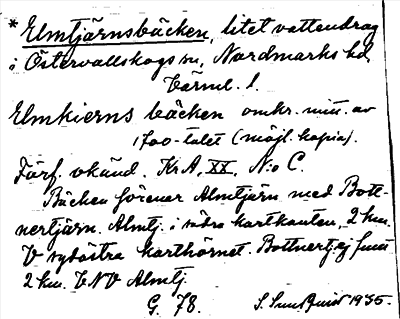 * Elmtjärnsbäcken, litet vattendrag
i Östervallskogs sn, Nordmarks hd,
Värml. l.
Elmkierns bäcken omkr. mitt. av
1700-talet (möjl. kopia).
Förf. okänd. Kr A, XX, N:o C.
Bäcken förener Almtjärn med Bott-
nertjärn. Almtj. i södra kartkanten, 2 km.
V sydöstra karthörnet. Bottnertj. ej fullt
2 km. VNV Almtj.
G. 78. 1935.